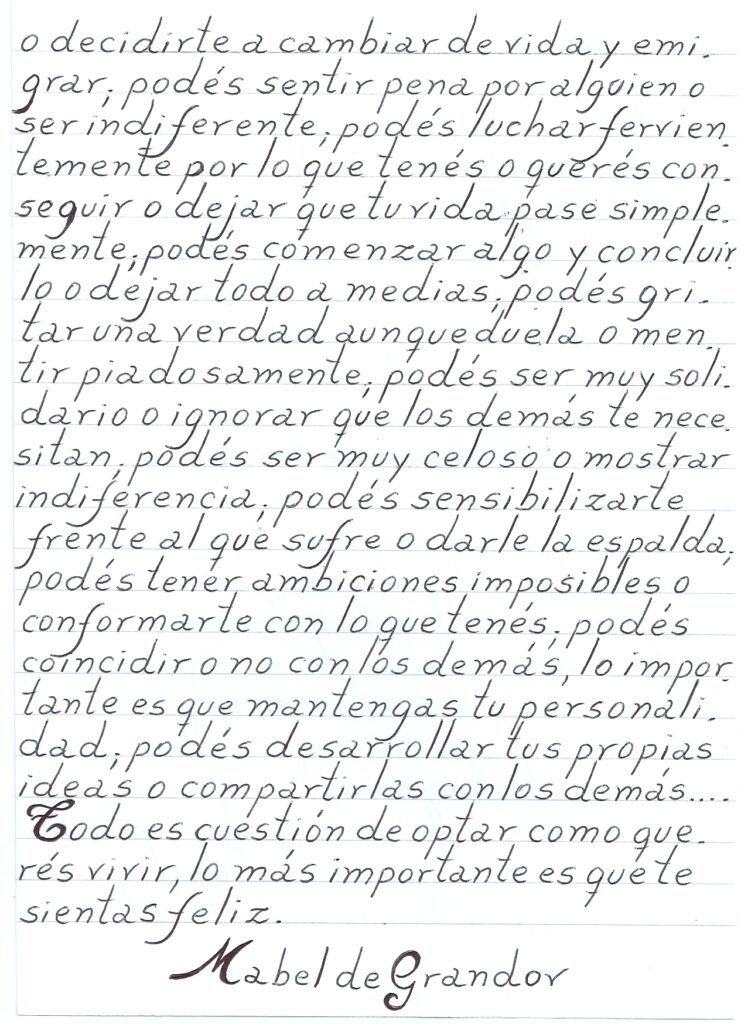 o decidirte a cambiar de vida y emi-
grar; podés sentir pena por alguien o
ser indiferente; podés luchar fervien-
temente por lo que tenés o querés con-
seguir o dejar que tu vida pase simple-
mente; podés comenzar algo y concluir
lo o dejar todo a medias; podés gri-
tar una verdad aunque duela o men-
tir piadosamente; podés ser muy soli-
dario o ignorar que los demás te nece-
sitan; podés ser muy celoso o mostrar
indiferencia; podés sensibilizarte
frente al que sufre o darle la espalda;
podés tener ambiciones imposibles o
conformarte con lo que tenés; podés
coincidir o no con los demás, lo impor-
tante es que mantengas tu personali-
dad; podés desarrollar tus propias
ideas o compartirlas con los demás....
Todo es cuestión de optar como que-
rés vivir, lo más importante es que te
sientas feliz.
Mabel de Grandov